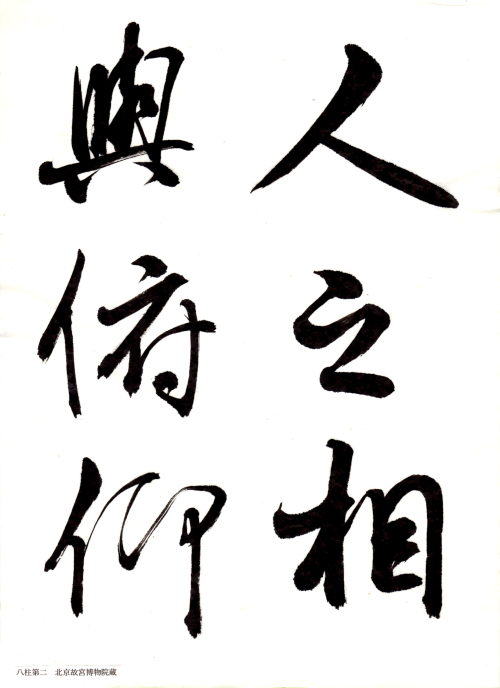 人之相
與俯仰
八柱第二　北京故宮博物院蔵